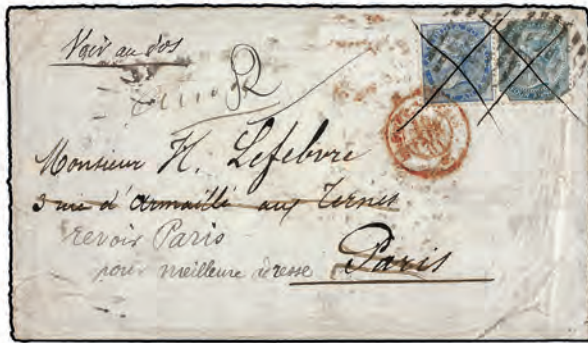 Voir au dos
R
Monsieur H. Lefebvre
3 rue d'Armaillé aux Ternes
revoir Paris
pour meilleure adresse Paris